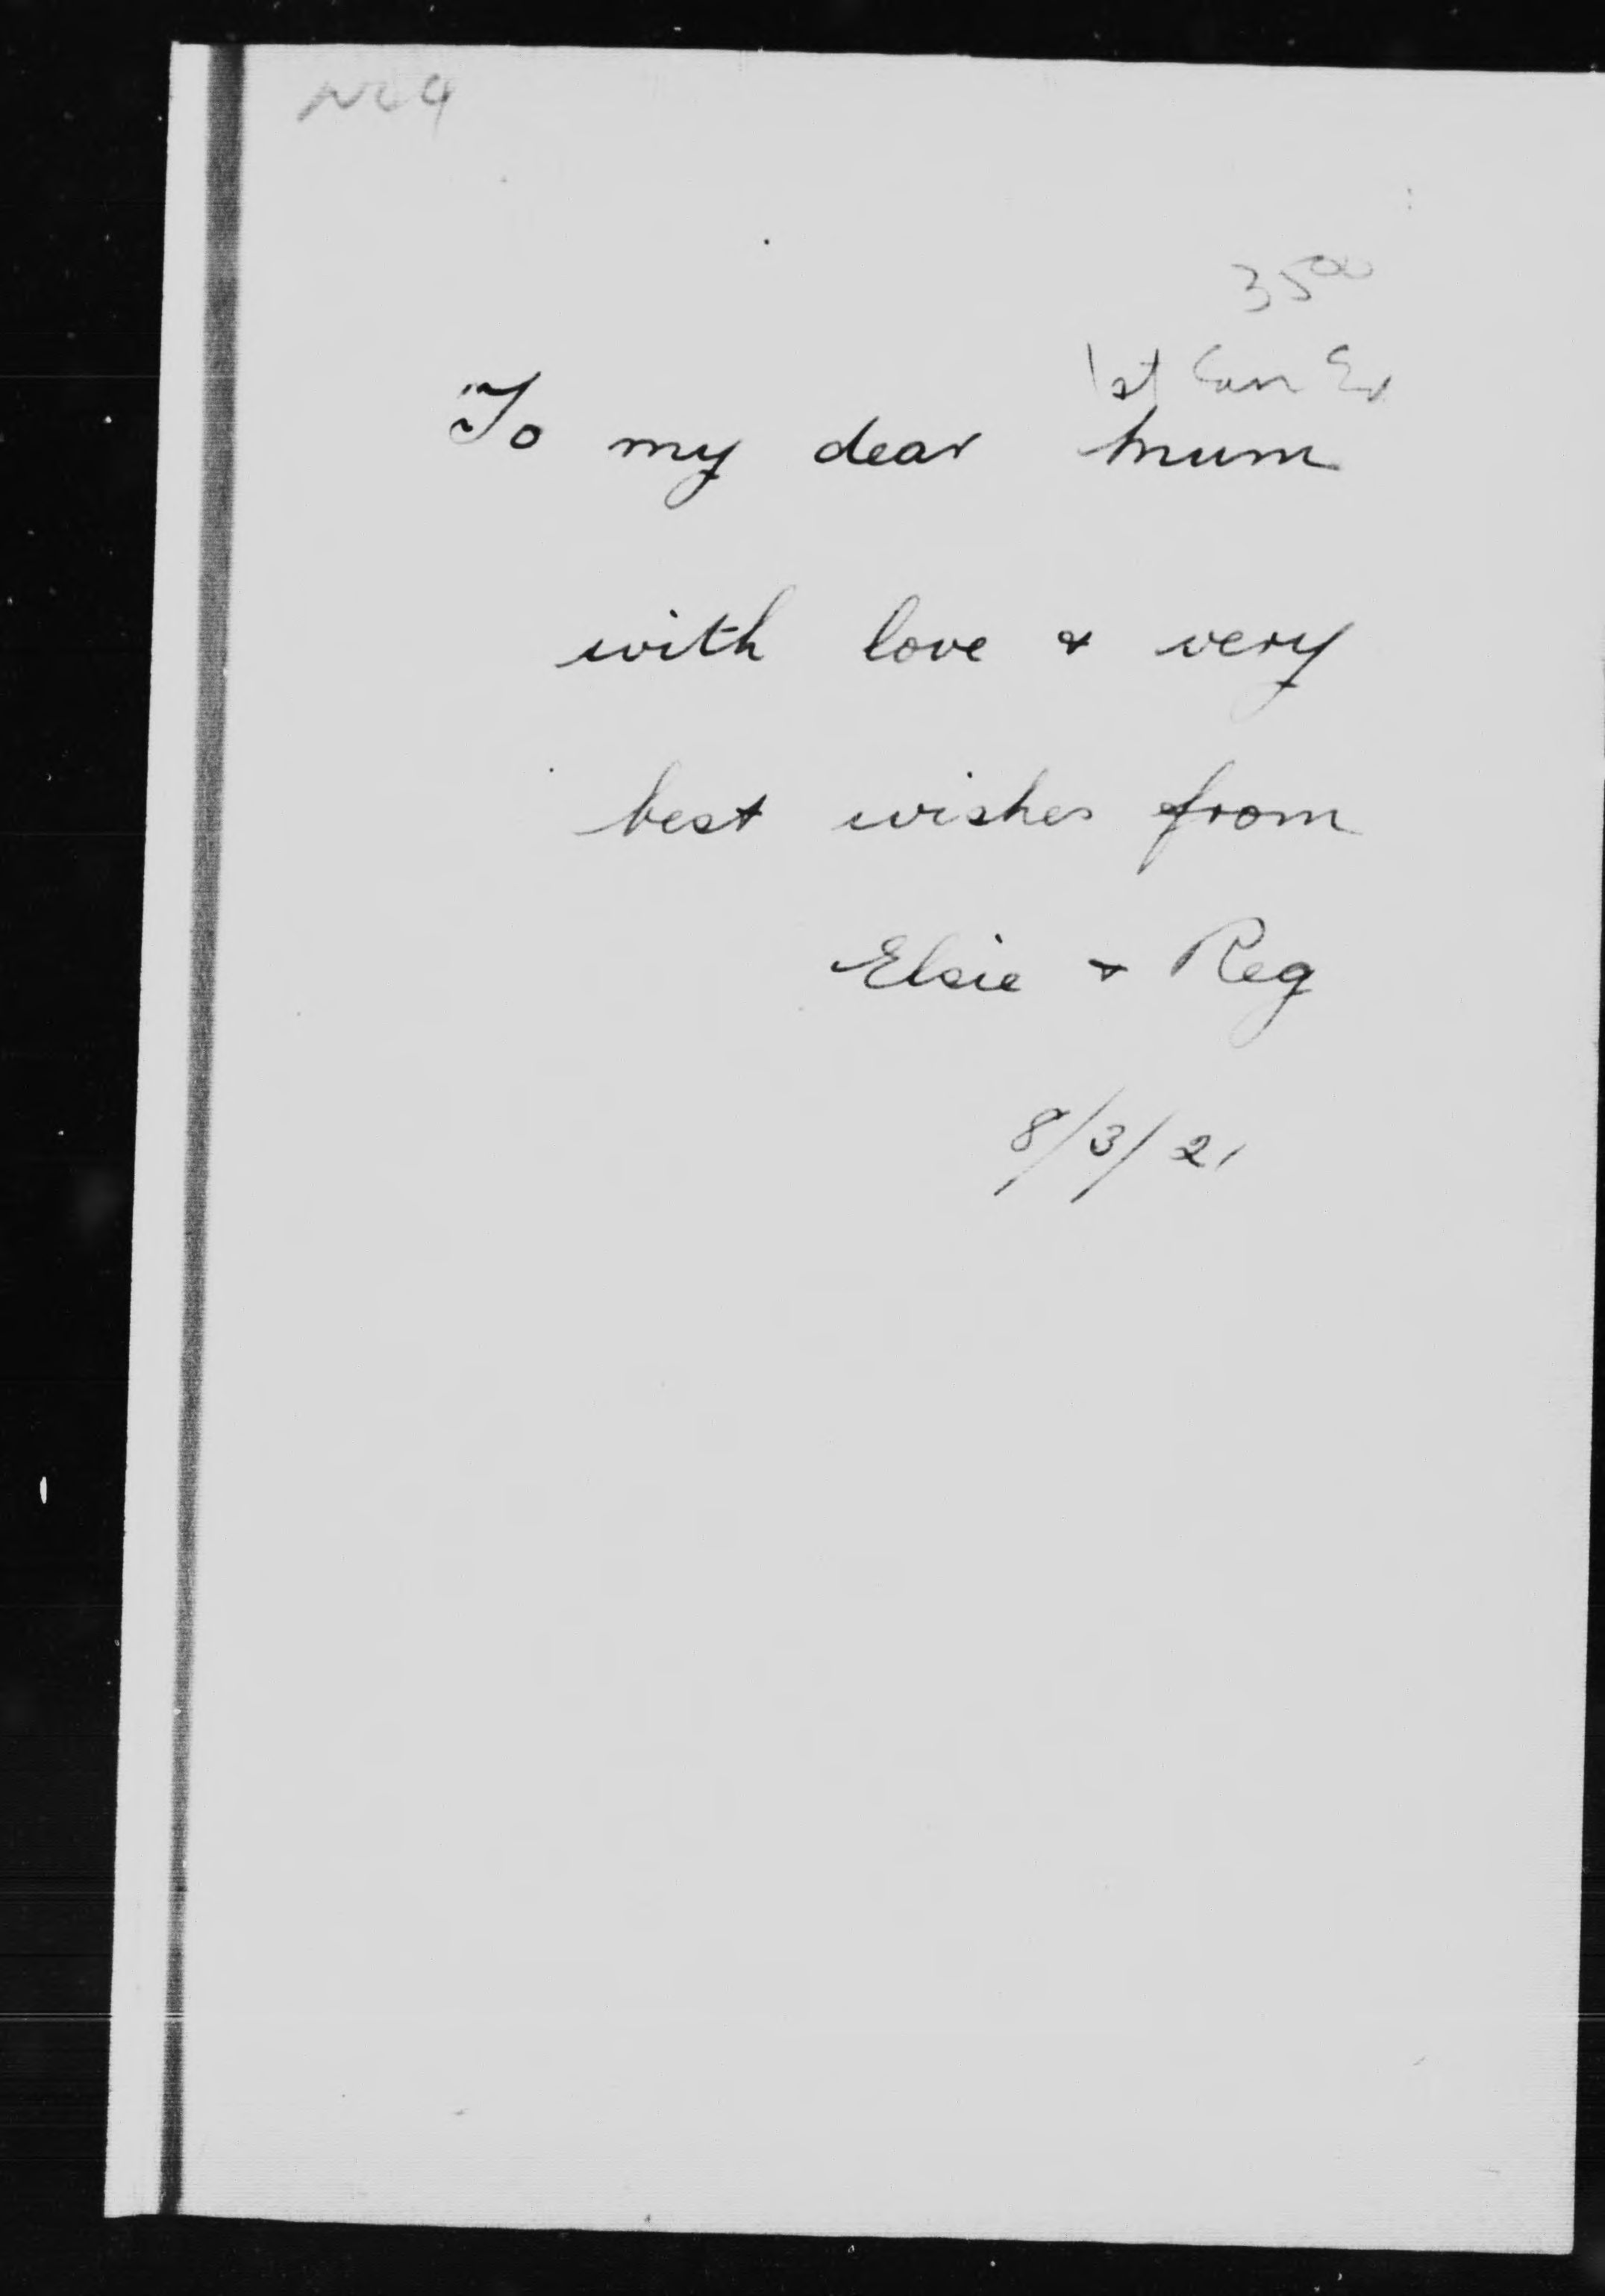 3500
1st Can Ed
To my dear Mum
with love & very
best wishes from
Elsie & Reg
8/3/21